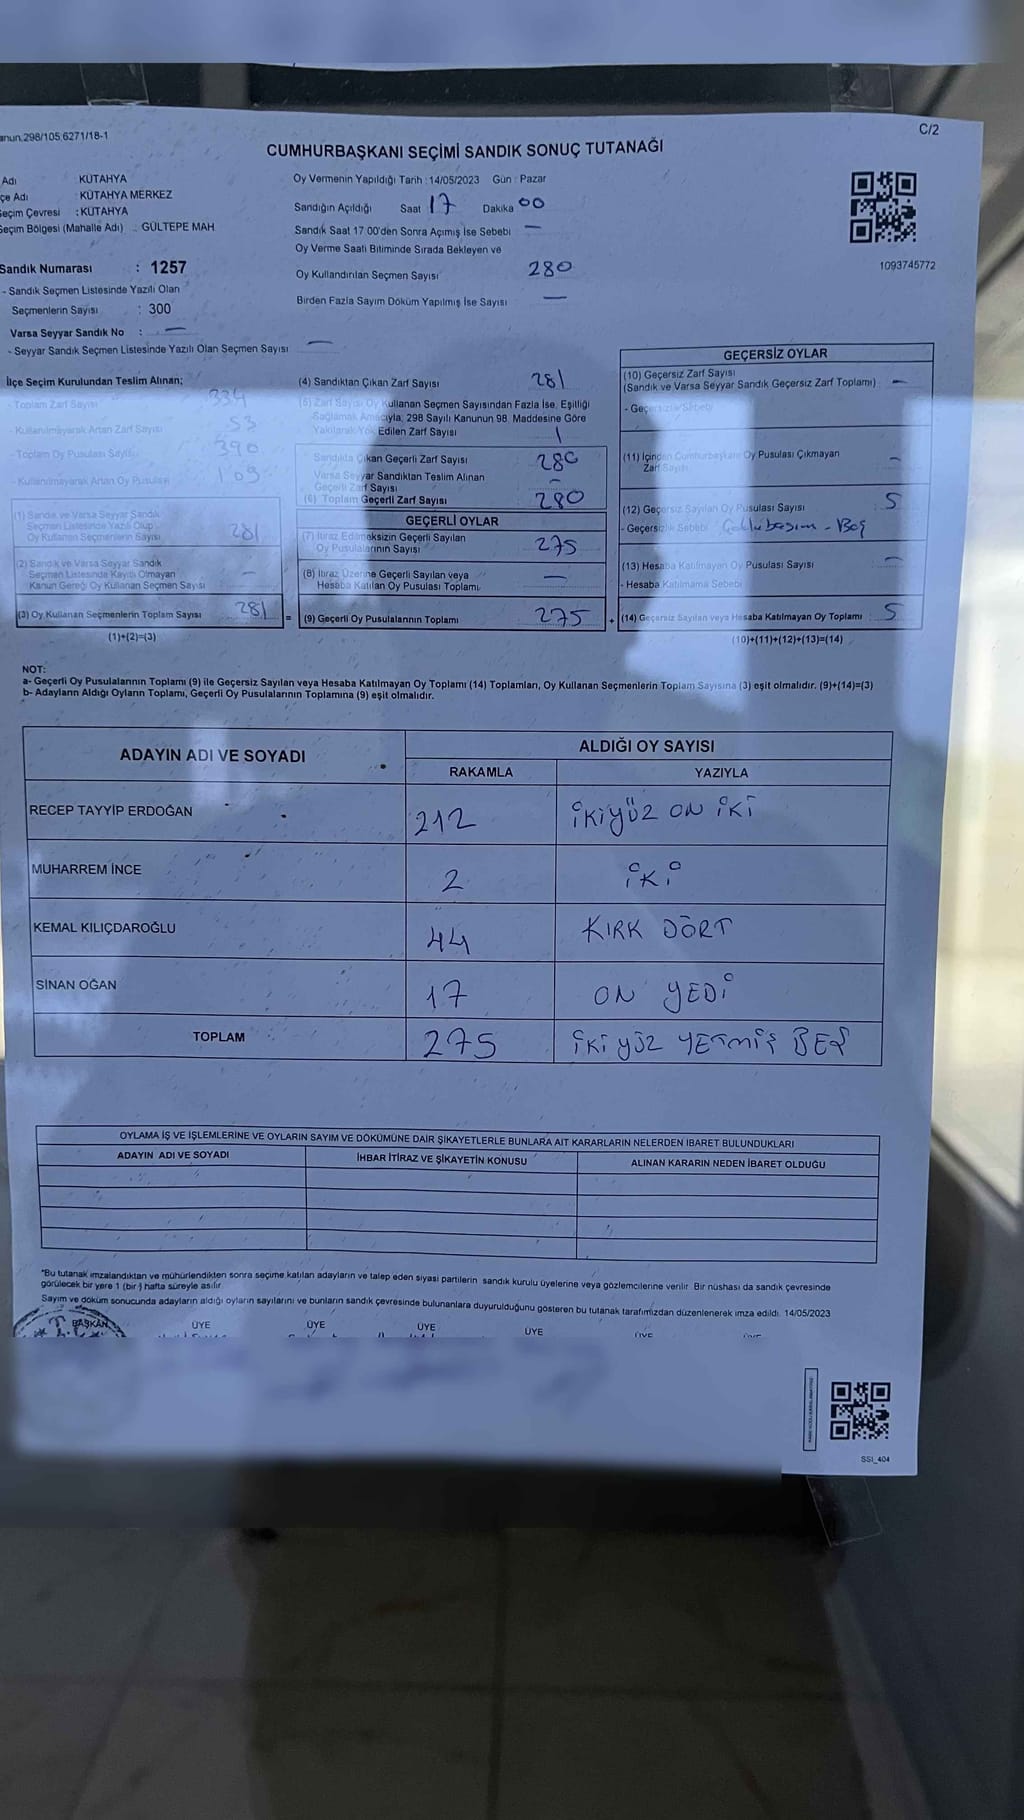 anun.298/105,6271/18-1
C/2
CUMHURBAŞKANI SEÇİMİ SANDIK SONUÇ TUTANAĞI
Adı KÜTAHYA
çe Adı : KÜTAHYA MERKEZ
Seçim Çevresi : KÜTAHYA
Seçim Bölgesi (Mahalle Adı) : GÜLTEPE MAH
Sandık Numarası : 1257
- Sandık Seçmen Listesinde Yazılı Olan
Seçmenlerin Sayısı : 300
Varsa Seyyar Sandık No : —
- Seyyar Sandık Seçmen Listesinde Yazılı Olan Seçmen Sayısı —
Oy Vermenin Yapıldığı Tarih : 14/05/2023 Gün : Pazar
Sandığın Açıldığı Saat 17 Dakika 00
Sandık Saat 17.00'den Sonra Açımış İse Sebebi —
Oy Verme Saati Bitiminde Sırada Bekleyen ve
Oy Kullandırılan Seçmen Sayısı 280
Birden Fazla Sayım Döküm Yapılmış İse Sayısı —
1093745772
İlçe Seçim Kurulundan Teslim Alınan;
- Toplam Zarf Sayısı 334
- Kullanılmayarak Artan Zarf Sayısı 53
- Toplam Oy Pusulası Sayısı 390
- Kullanılmayarak Artan Oy Pusulası 109
(1) Sandık ve Varsa Seyyar Sandık
Seçmen Listesinde Yazılı Olup
Oy Kullanan Seçmenlerin Sayısı 281
(2) Sandık ve Varsa Seyyar Sandık
Seçmen Listesinde Kayıtlı Olmayan
Kanun Gereği Oy Kullanan Seçmen Sayısı —
(3) Oy Kullanan Seçmenlerin Toplam Sayısı 281 =
(1)+(2)=(3)
(4) Sandıktan Çıkan Zarf Sayısı 281
(5) Zarf Sayısı Oy Kullanan Seçmen Sayısından Fazla İse, Eşitliği
Sağlamak Amacıyla, 298 Sayılı Kanunun 98. Maddesine Göre
Yakılarak Yok Edilen Zarf Sayısı 1
Sandıkta Çıkan Geçerli Zarf Sayısı 280
Varsa Seyyar Sandıktan Teslim Alınan
Geçerli Zarf Sayısı —
(6) Toplam Geçerli Zarf Sayısı 280
GEÇERLİ OYLAR
(7) İtiraz Edilmeksizin Geçerli Sayılan
Oy Pusulalarının Sayısı 275
(8) İtiraz Üzerine Geçerli Sayılan veya
Hesaba Katılan Oy Pusulası Toplamı —
(9) Geçerli Oy Pusulalarının Toplamı 275 +
GEÇERSİZ OYLAR
(10) Geçersiz Zarf Sayısı
(Sandık ve Varsa Seyyar Sandık Geçersiz Zarf Toplamı) —
- Geçersizlik Sebebi
(11) İçinden Cumhurbaşkanı Oy Pusulası Çıkmayan
Zarf Sayısı —
(12) Geçersiz Sayılan Oy Pusulası Sayısı 5
- Geçersizlik Sebebi Çoklu basım - Boş
(13) Hesaba Katılmayan Oy Pusulası Sayısı —
- Hesaba Katılmama Sebebi
(14) Geçersiz Sayılan veya Hesaba Katılmayan Oy Toplamı 5
(10)+(11)+(12)+(13)=(14)
NOT:
a- Geçerli Oy Pusulalarının Toplamı (9) ile Geçersiz Sayılan veya Hesaba Katılmayan Oy Toplamı (14) Toplamları, Oy Kullanan Seçmenlerin Toplam Sayısına (3) eşit olmalıdır. (9)+(14)=(3)
b- Adayların Aldığı Oyların Toplamı, Geçerli Oy Pusulalarının Toplamına (9) eşit olmalıdır.
ADAYIN ADI VE SOYADI ALDIĞI OY SAYISI
RAKAMLA YAZIYLA
RECEP TAYYİP ERDOĞAN 212 İKİYÜZ ON İKİ
MUHARREM İNCE 2 İKİ
KEMAL KILIÇDAROĞLU 44 KIRK DÖRT
SİNAN OĞAN 17 ON YEDİ
TOPLAM 275 İKİ YÜZ YETMİŞ BEŞ
OYLAMA İŞ VE İŞLEMLERİNE VE OYLARIN SAYIM VE DÖKÜMÜNE DAİR ŞİKAYETLERLE BUNLARA AİT KARARLARIN NELERDEN İBARET BULUNDUKLARI
ADAYIN ADI VE SOYADI İHBAR İTİRAZ VE ŞİKAYETİN KONUSU ALINAN KARARIN NEDEN İBARET OLDUĞU
*Bu tutanak imzalandıktan ve mühürlendikten sonra seçime katılan adayların ve talep eden siyasi partilerin sandık kurulu üyelerine veya gözlemcilerine verilir. Bir nüshası da sandık çevresinde
görülecek bir yere 1 (bir) hafta süreyle asılır.
Sayım ve döküm sonucunda adayların aldığı oyların sayılarını ve bunların sandık çevresinde bulunanlara duyurulduğunu gösteren bu tutanak tarafımızdan düzenlenerek imza edildi. 14/05/2023
BAŞKAN ÜYE ÜYE ÜYE ÜYE ÜYE
SSI_404